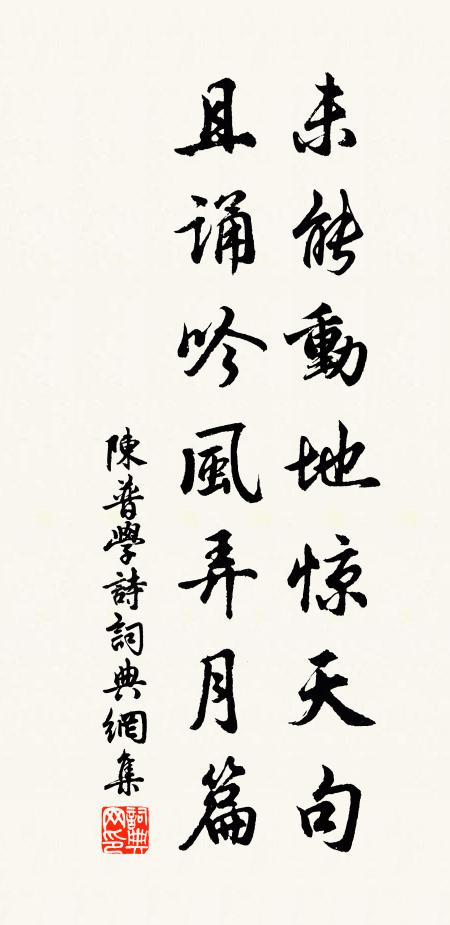 未能動地惊天句
且诵吟風弄月篇
陳普學詩詞典網集
詞典网印